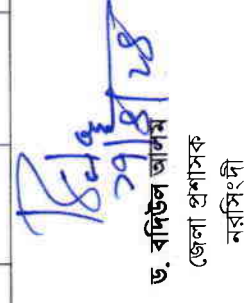 ২৭/৪/২৪
ড. বদিউল আলম
জেলা প্রশাসক
নরসিংদী